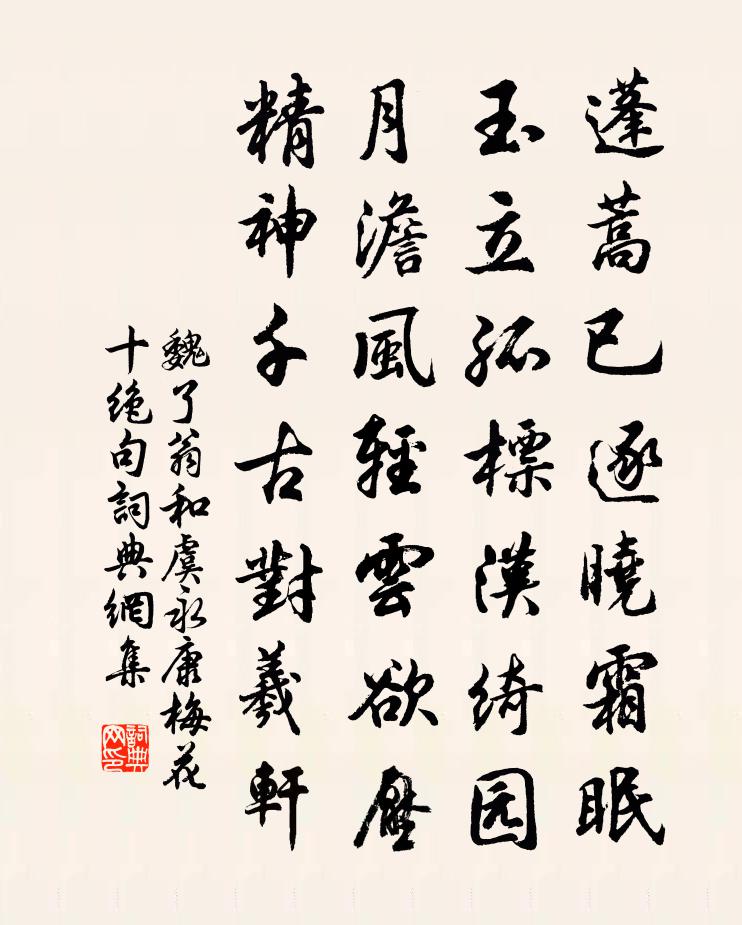 蓬蒿已逐曉霜眠
玉立孤標漢綺园
月澹風輕雲欲壓
精神千古對羲軒
魏了翁和虞永康梅花
十絶句詞典網集
詞典網印